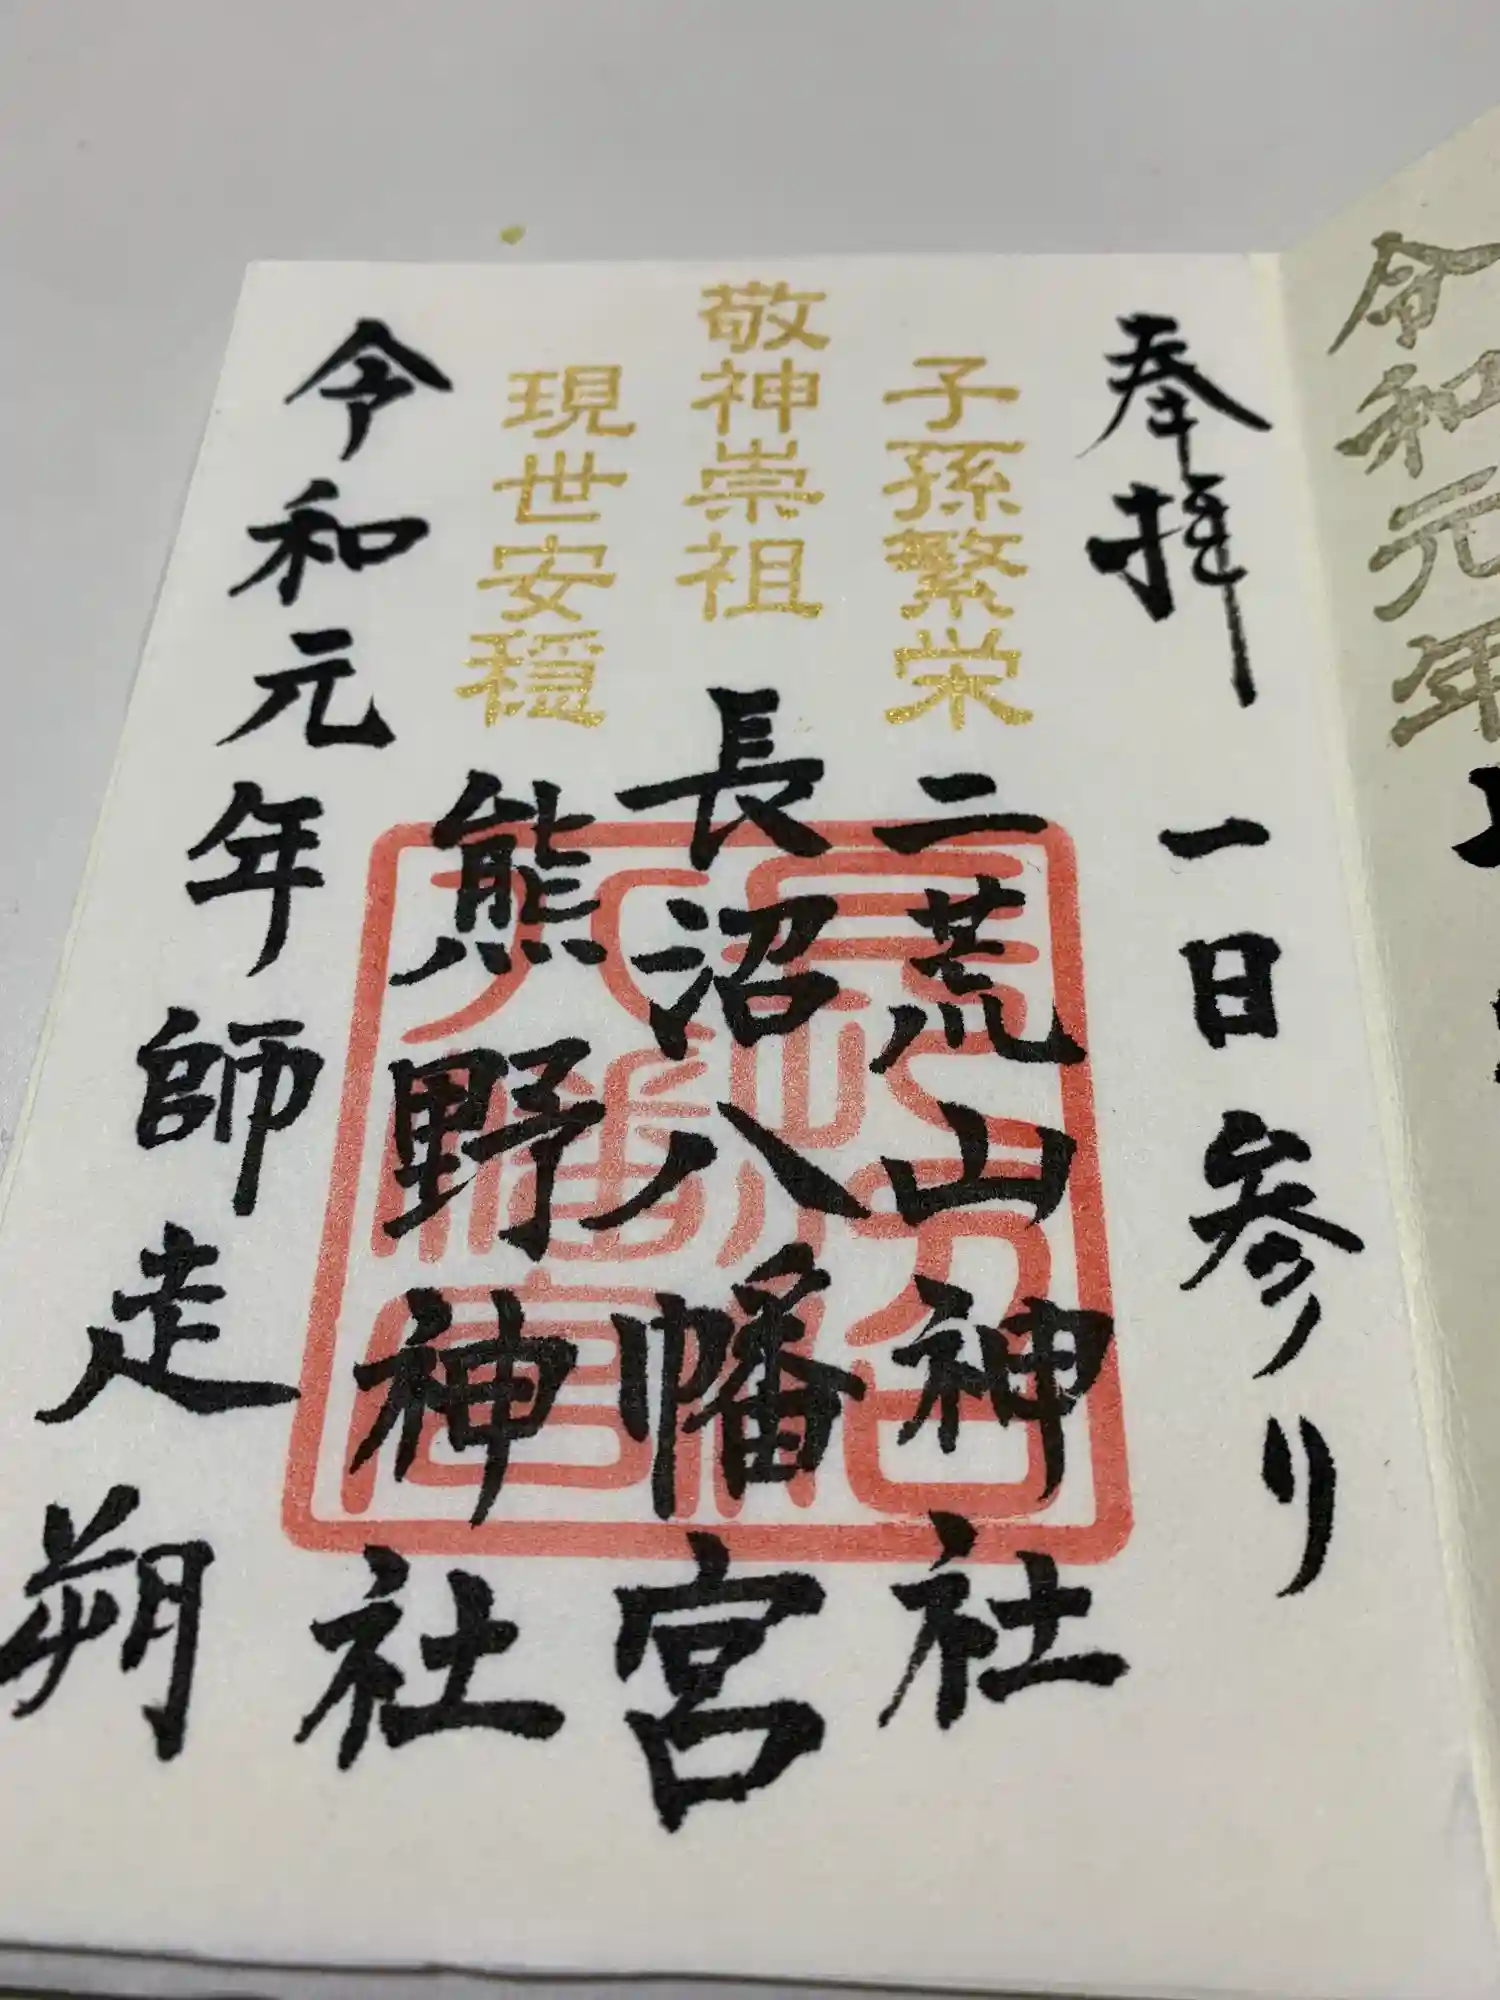 令和元年
奉拝
一日参り
子孫繁栄
二荒山神社
敬神崇祖
長沼八幡宮
現世安穏
熊野神社
令和元年師走朔